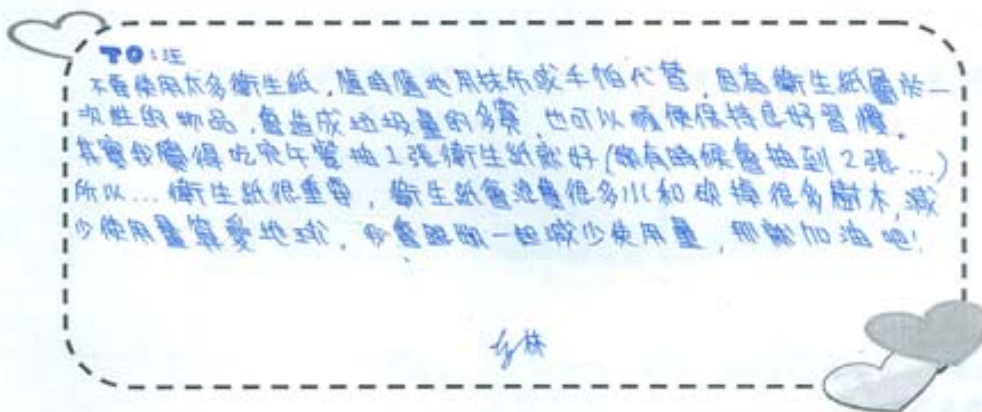 TO:汪
不要使用太多衛生紙,隨時隨地用抹布或手帕代替,因為衛生紙屬於一
次性的物品,會造成垃圾量的多寡,也可以順便保持良好習慣。
其實我覺得吃完午餐抽1張衛生紙就好(偶有時候會抽到2張...)
所以...衛生紙很重要,衛生紙會浪費很多水和砍掉很多樹木,減
少使用量算愛地球,我會跟你一起減少使用量,那就加油吧!
林